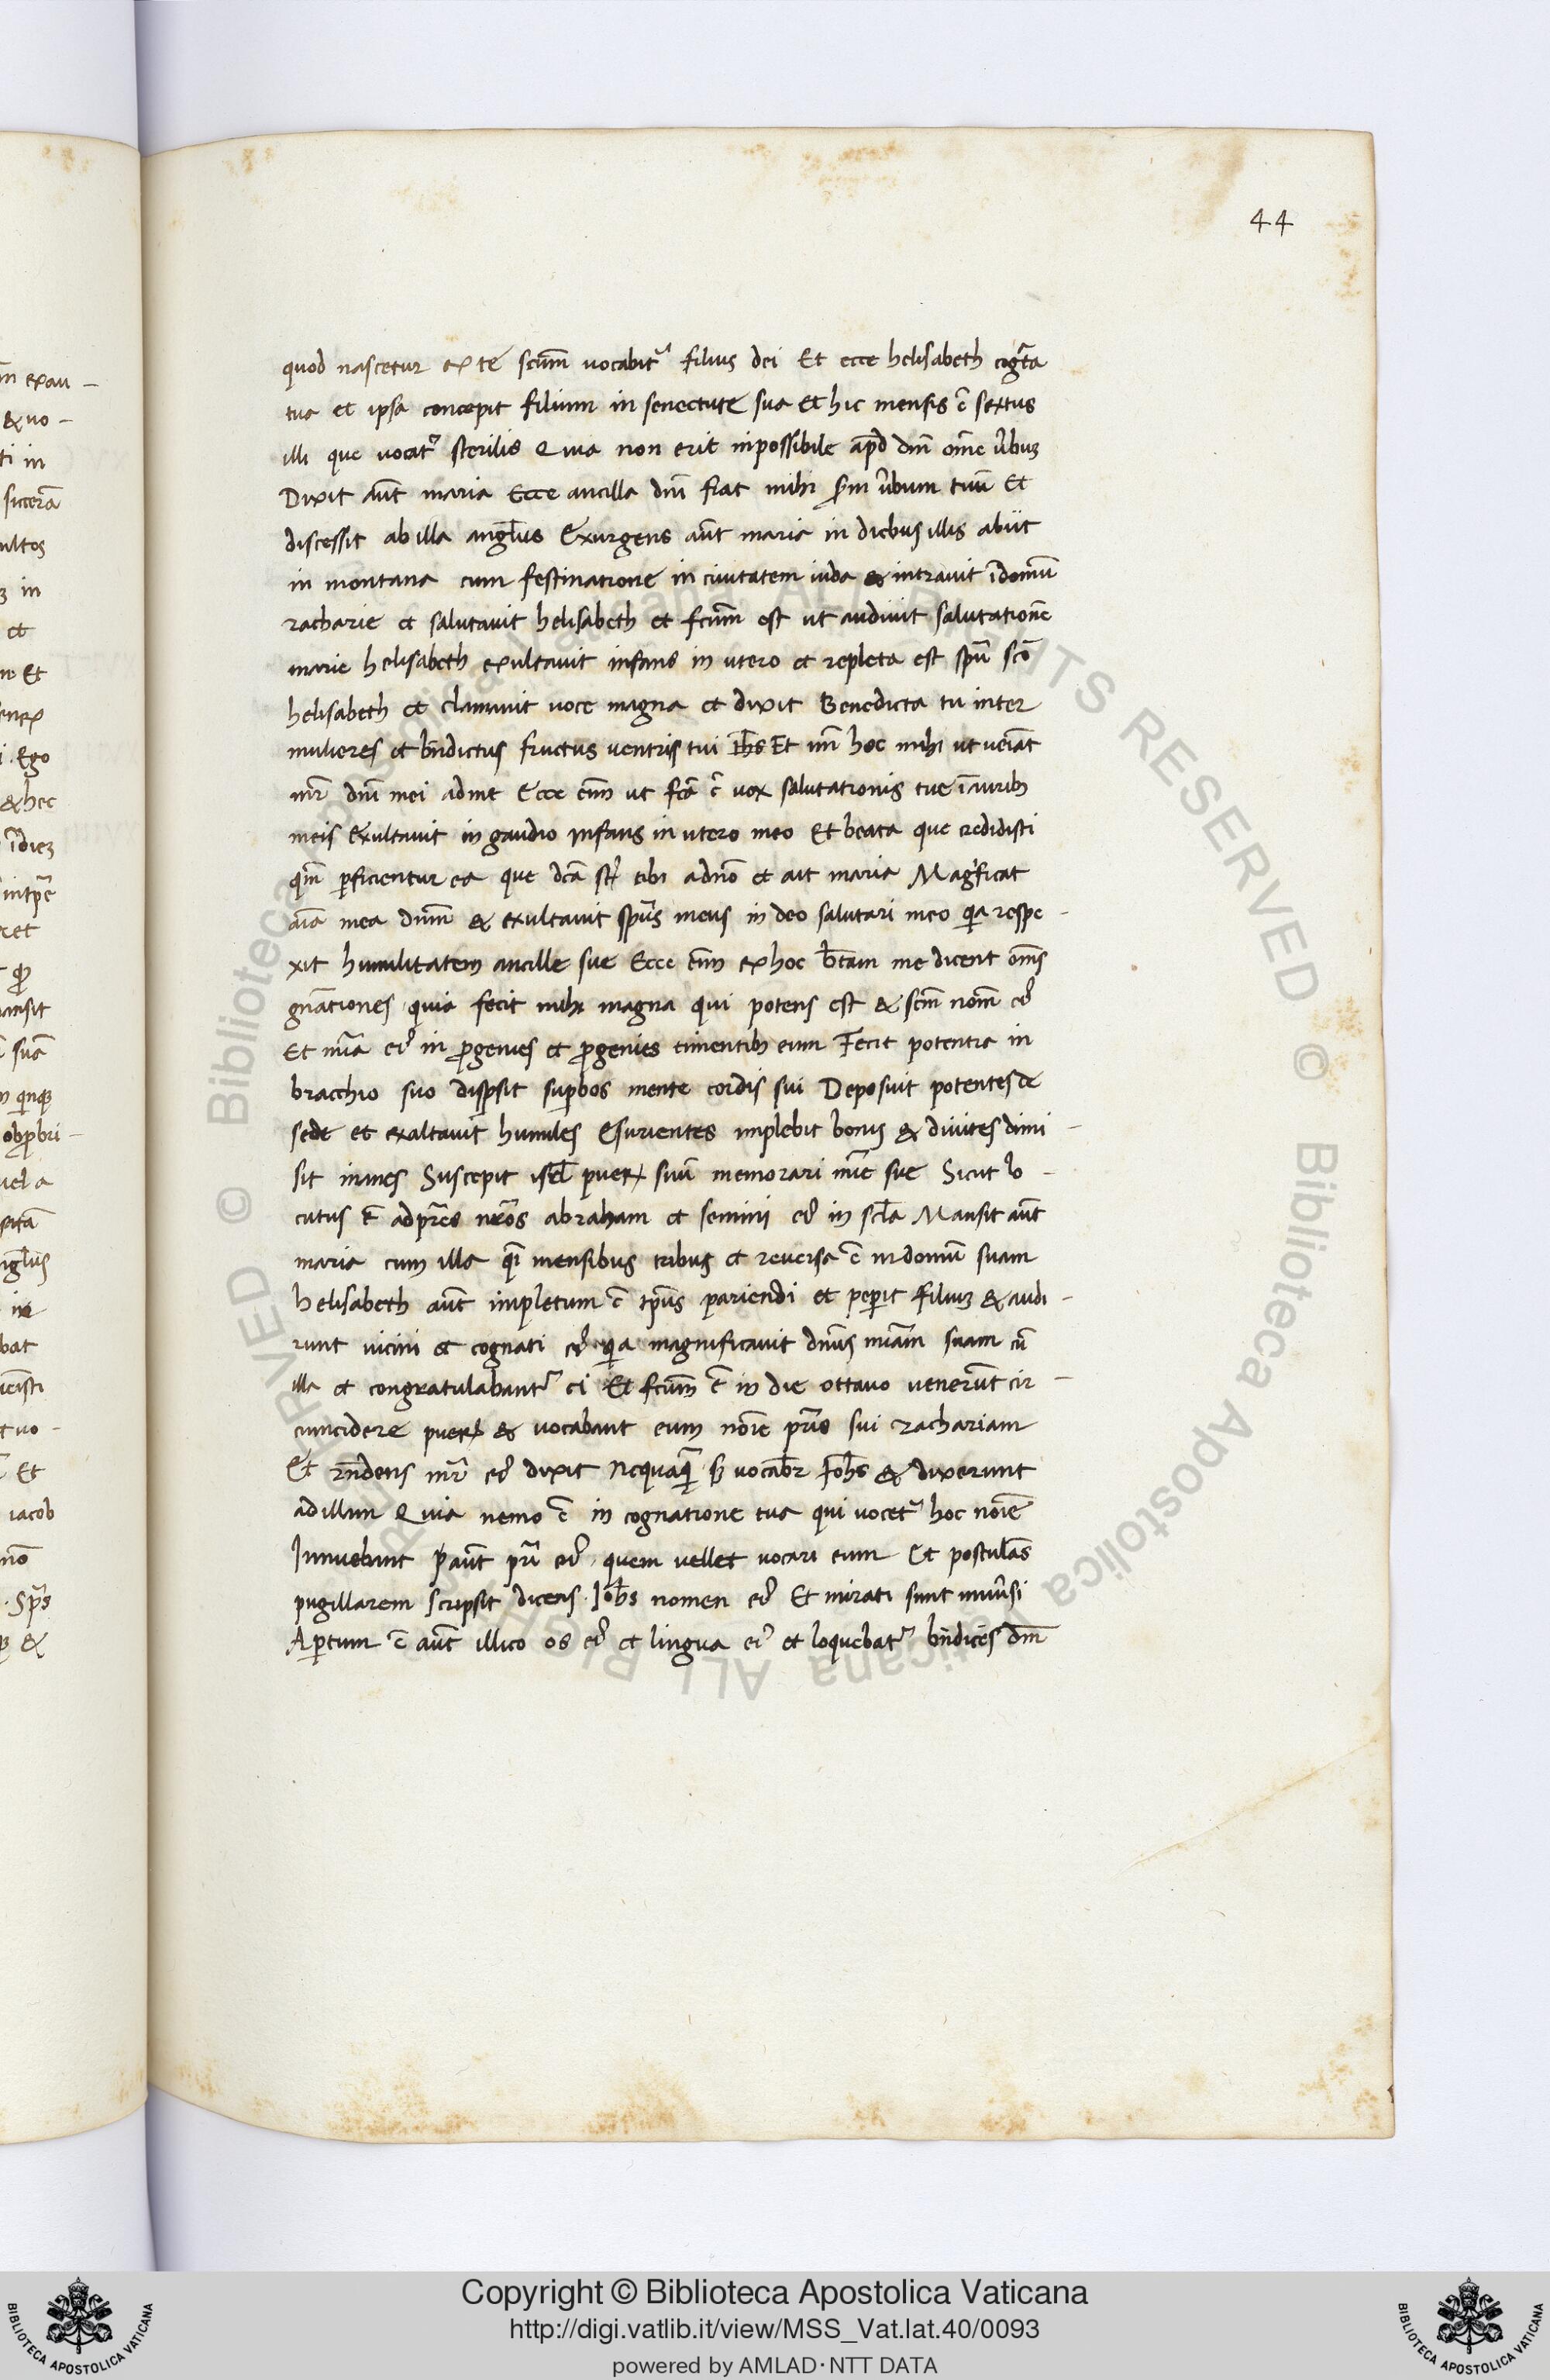 44
quod nascetur ex te scm̄ vocabit᷑ filius dei Et ecce helisabeth cog̅ta
tua et ipsa concepit filium in senectute sua et hic mensis ē sextus
illi que vocat᷑ sterilis Quia non erit inpossibile apd̄ dm̄ om̄e v̄bum
Dixit aūt maria Ecce ancilla dn̄i fiat mihi scd̄m v̄bum tuū Et
discessit ab illa angl̄us Exurgens aūt maria in diebus illis abiit
in montana cum festinatione in civitatem iuda & intravit ī domum
zacharie et salutavit helisabeth et fcm̄ est ut audivit salutationē
marie helisabeth exultavit infans in utero et repleta est spū scō
helisabeth et clamavit voce magna et dixit Benedicta tu inter
mulieres et bn̄dictus fructus ventris tui Ihs̄ Et un̄ hoc mihi ut veiāt
mr̄ dn̄i mei ad me Ecce em̄ ut fcā ē vox salutationis tue ī aurib
meis Exultavit in gaudio infans in utero meo Et beata que credidisti
qm̄ ꝑficientur ea que dcā st̄ tibi a dn̄o et ait maria Magficat
aīa mea dnm̄ & exultavit spūs meus in deo salutari meo q̄a respe-
xit humilitatem ancille sue Ecce em̄ ex hoc bt̄am me dicent om̄s
gn̄ationes quia fecit mihi magna qui potens est & scm̄ nom̄ eꝰ
Et mīa eꝰ in ꝓgenies et ꝓgenies timentib eum Fecit potentia in
bracchio suo disꝑsit suꝑbos mente cordis sui Deposuit potentes de
sede et exaltavit humiles Esurientes implebit bonis & divites dimi-
sit inanes Suscepit isrl̄ puerum suū memorari mīe sue Sicut lo-
cutus ē ad pr̄es nr̄os abraham et semini eꝰ in scl̄a Mansit aūt
maria cum illa qī mensibus tribus et reversa ē in domū suam
helisabeth aūt impletum ē tp̄us pariendi et peꝑit filium & audi-
runt vicini et cognati eꝰ q̄a magnificavit dn̄us mīam suam cū
illa et congratulabant᷑ ei Et fcm̄ ē in die ottavo venerūt cir-
cumcidere puerum & vocabant eum noīe pr̄is sui zachariam
Et rn̄dens mr̄ eꝰ dixit Nequaq̄ s vocab̄r Ioh̄s & dixerunt
ad illam Quia nemo ē in cognatione tua qui vocet᷑ hoc noīe
Innuebant aūt pr̄i eꝰ quem vellet vocari eum Et postulās
pugillarem scripsit dicens Ioh̄s nomen eꝰ Et mirati sunt univ̄si
Aꝑtum ē aūt illico os eꝰ et lingua eꝰ et loquebat᷑ bn̄dicēs dm̄
Copyright © Biblioteca Apostolica Vaticana
http://digi.vatlib.it/view/MSS_Vat.lat.40/0093
powered by AMLAD·NTT DATA